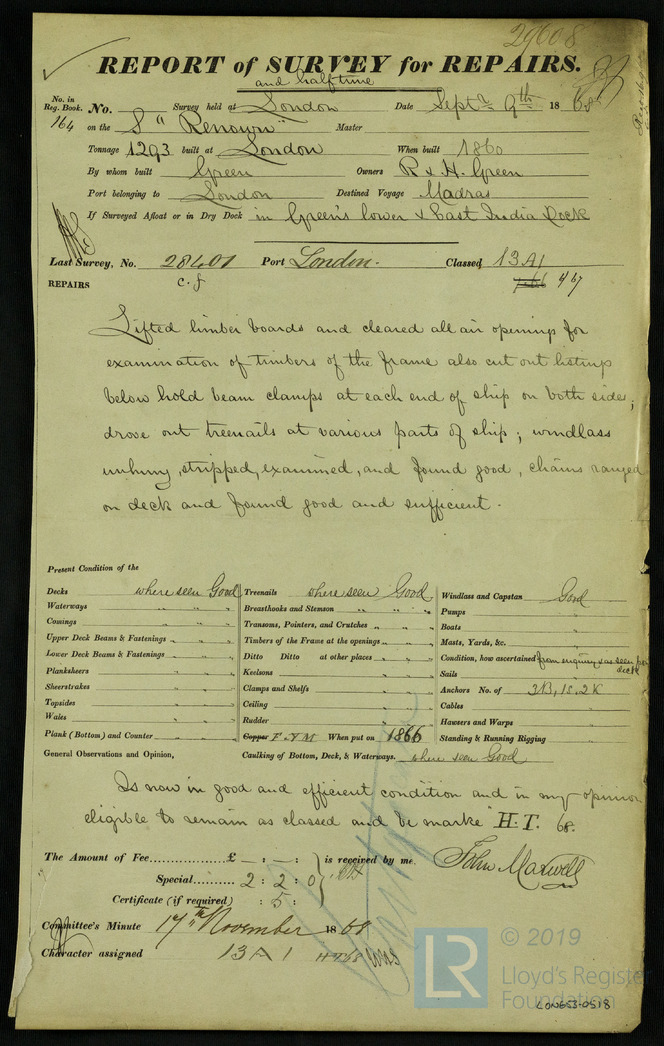 29608
REPORT of SURVEY for REPAIRS.
and half time
No. in Reg. Book. No. Survey held at London Date Septr 9th 1868
164 on the S " Renown" Master
Tonnage 1293 built at London When built 1860
By whom built Green Owners R & H. Green
Port belonging to London Destined Voyage Madras
If Surveyed Afloat or in Dry Dock in Green's lower & East India Dock
Last Survey, No. 28401 Port London. Classed 13 A1
REPAIRS c.f
Lifted limber boards and cleared all air openings for
examination of timbers of the frame also cut out listing
below hold beam clamps at each end of ship on both sides;
drove out treenails at various parts of ship; windlass
unhung, stripped, examined, and found good, chains ranged
on deck and found good and sufficient.
Present Condition of the
Decks where seen Good Treenails where seen Good Windlass and Capstan Good
Waterways " " " Breasthooks and Stemson " " " Pumps "
Comings " " " Transoms, Pointers, and Crutches " " " Boats "
Upper Deck Beams & Fastenings " " " Timbers of the Frame at the openings " " " Masts, Yards, &c. "
Lower Deck Beams & Fastenings " " " Ditto Ditto at other places " " " Condition, how ascertained from enquiry & as seen from deck
Planksheers " " " Keelsons " " " Sails "
Sheerstrakes " " " Clamps and Shelfs " " " Anchors No. of 3B, 1S, 2K
Topsides " " " Ceiling " " " Cables "
Wales " " " Rudder " " " Hawsers and Warps "
Plank (Bottom) and Counter " " " Copper F & M When put on 1866 Standing & Running Rigging "
General Observations and Opinion, Caulking of Bottom, Deck, & Waterways. where seen Good
Is now in good and efficient condition and in my opinion
eligible to remain as classed and be marke H.T. 68.
The Amount of Fee............... £ — : — : is received by me. John Maxwell
Special.......... 2 : 2 : 0
Certificate (if required) : 5 :
Committee's Minute 17th November 1868
Character assigned 13 A 1 HT68
LR © 2019
Lloyd's Register
Foundation
LON653-0518